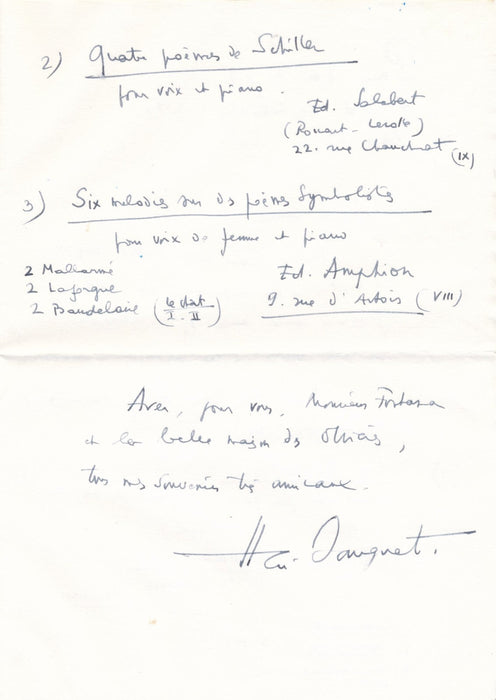 2) Quatre poèmes de Schiller
pour voix et piano.
Ed. Salabert
(Rouart - Lerolle)
22. rue Chauchat (IX)
3) Six mélodies sur des poèmes Symbolistes
pour voix de femme et piano
2 Mallarmé
2 Laforgue
2 Baudelaire (le chat I - II)
Ed. Amphion
9. rue d'Artois (VIII)
Avec, pour vous, Monsieur Fontana
et la belle maison des ,
tous mes souvenirs très amicaux.
Hri. Sauguet.